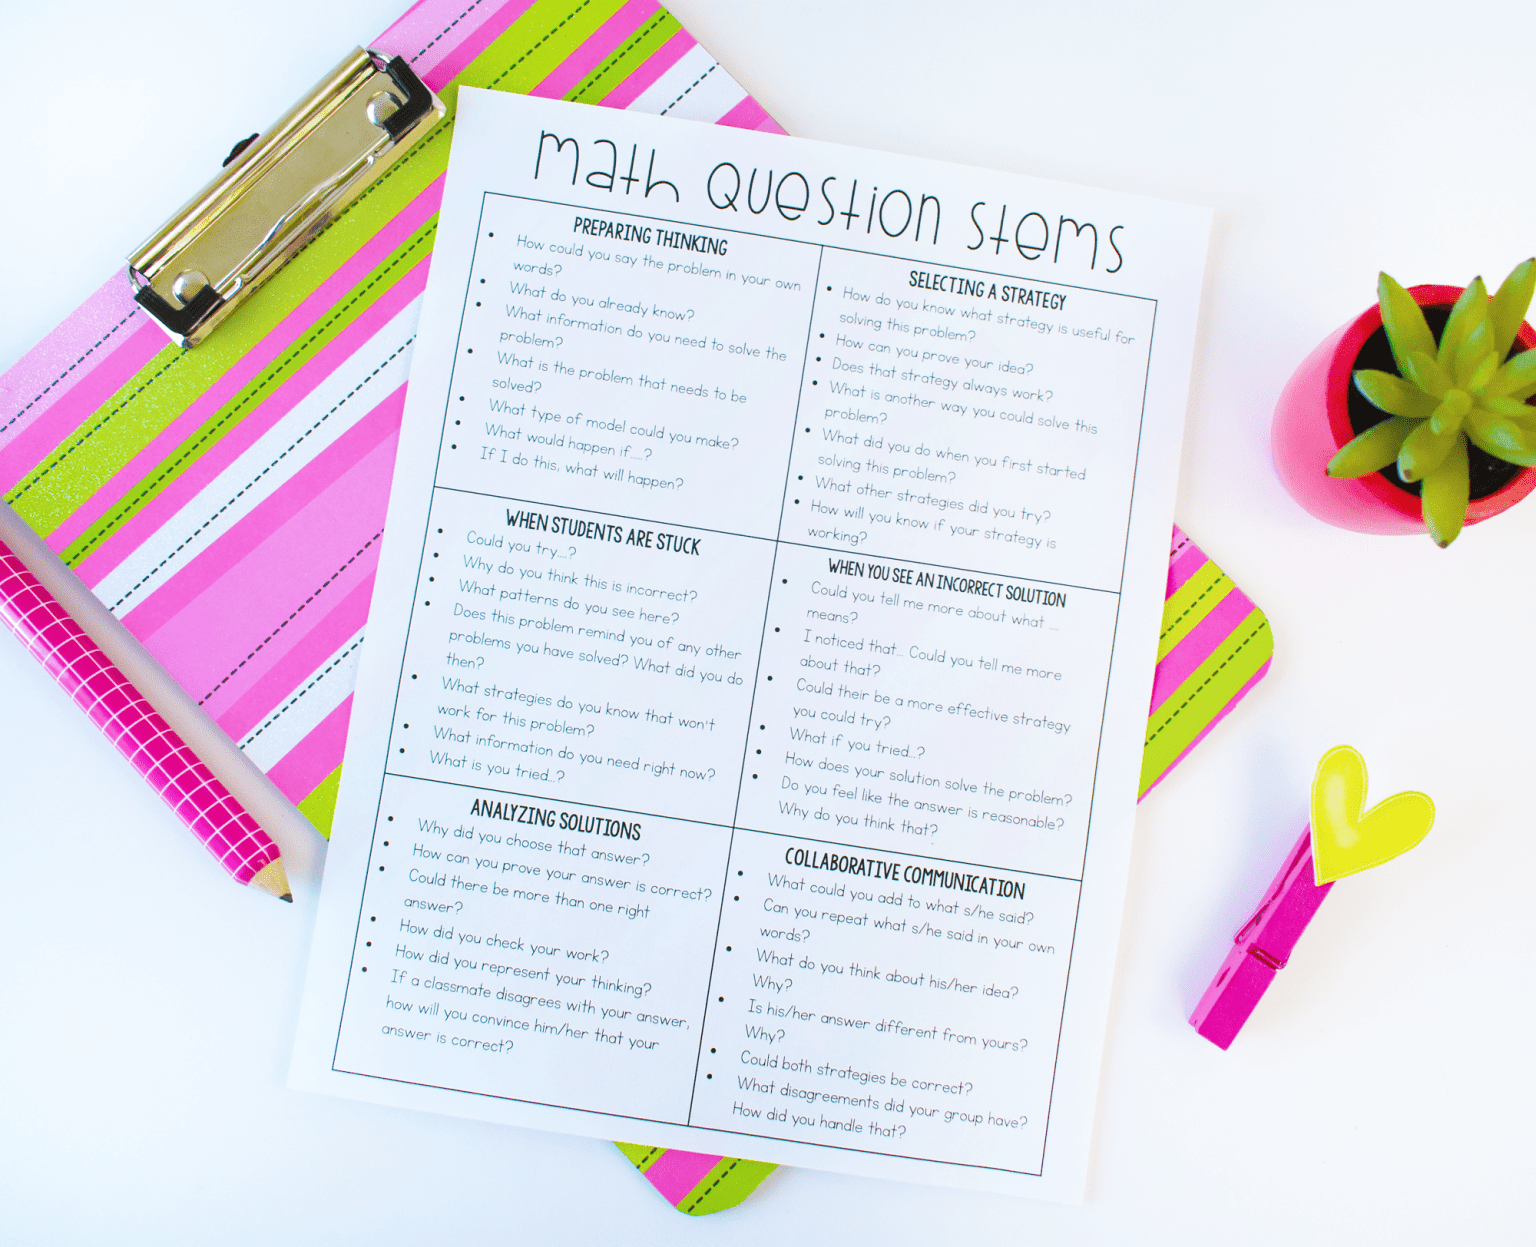 math Question Stems
PREPARING THINKING
How could you say the problem in your own
words?
What do you already know?
What information do you need to solve the
problem?
What is the problem that needs to be
solved?
What type of model could you make?
What would happen if....?
If I do this, what will happen?
SELECTING A STRATEGY
How do you know what strategy is useful for
solving this problem?
How can you prove your idea?
Does that strategy always work?
What is another way you could solve this
problem?
What did you do when you first started
solving this problem?
What other strategies did you try?
How will you know if your strategy is
working?
WHEN STUDENTS ARE STUCK
Could you try...?
Why do you think this is incorrect?
What patterns do you see here?
Does this problem remind you of any other
problems you have solved? What did you do
then?
What strategies do you know that won't
work for this problem?
What information do you need right now?
What is you tried...?
WHEN YOU SEE AN INCORRECT SOLUTION
Could you tell me more about what ...
means?
I noticed that... Could you tell me more
about that?
Could their be a more effective strategy
you could try?
What if you tried...?
How does your solution solve the problem?
Do you feel like the answer is reasonable?
Why do you think that?
ANALYZING SOLUTIONS
Why did you choose that answer?
How can you prove your answer is correct?
Could there be more than one right
answer?
How did you check your work?
How did you represent your thinking?
If a classmate disagrees with your answer,
how will you convince him/her that your
answer is correct?
COLLABORATIVE COMMUNICATION
What could you add to what s/he said?
Can you repeat what s/he said in your own
words?
What do you think about his/her idea?
Why?
Is his/her answer different from yours?
Why?
Could both strategies be correct?
What disagreements did your group have?
How did you handle that?